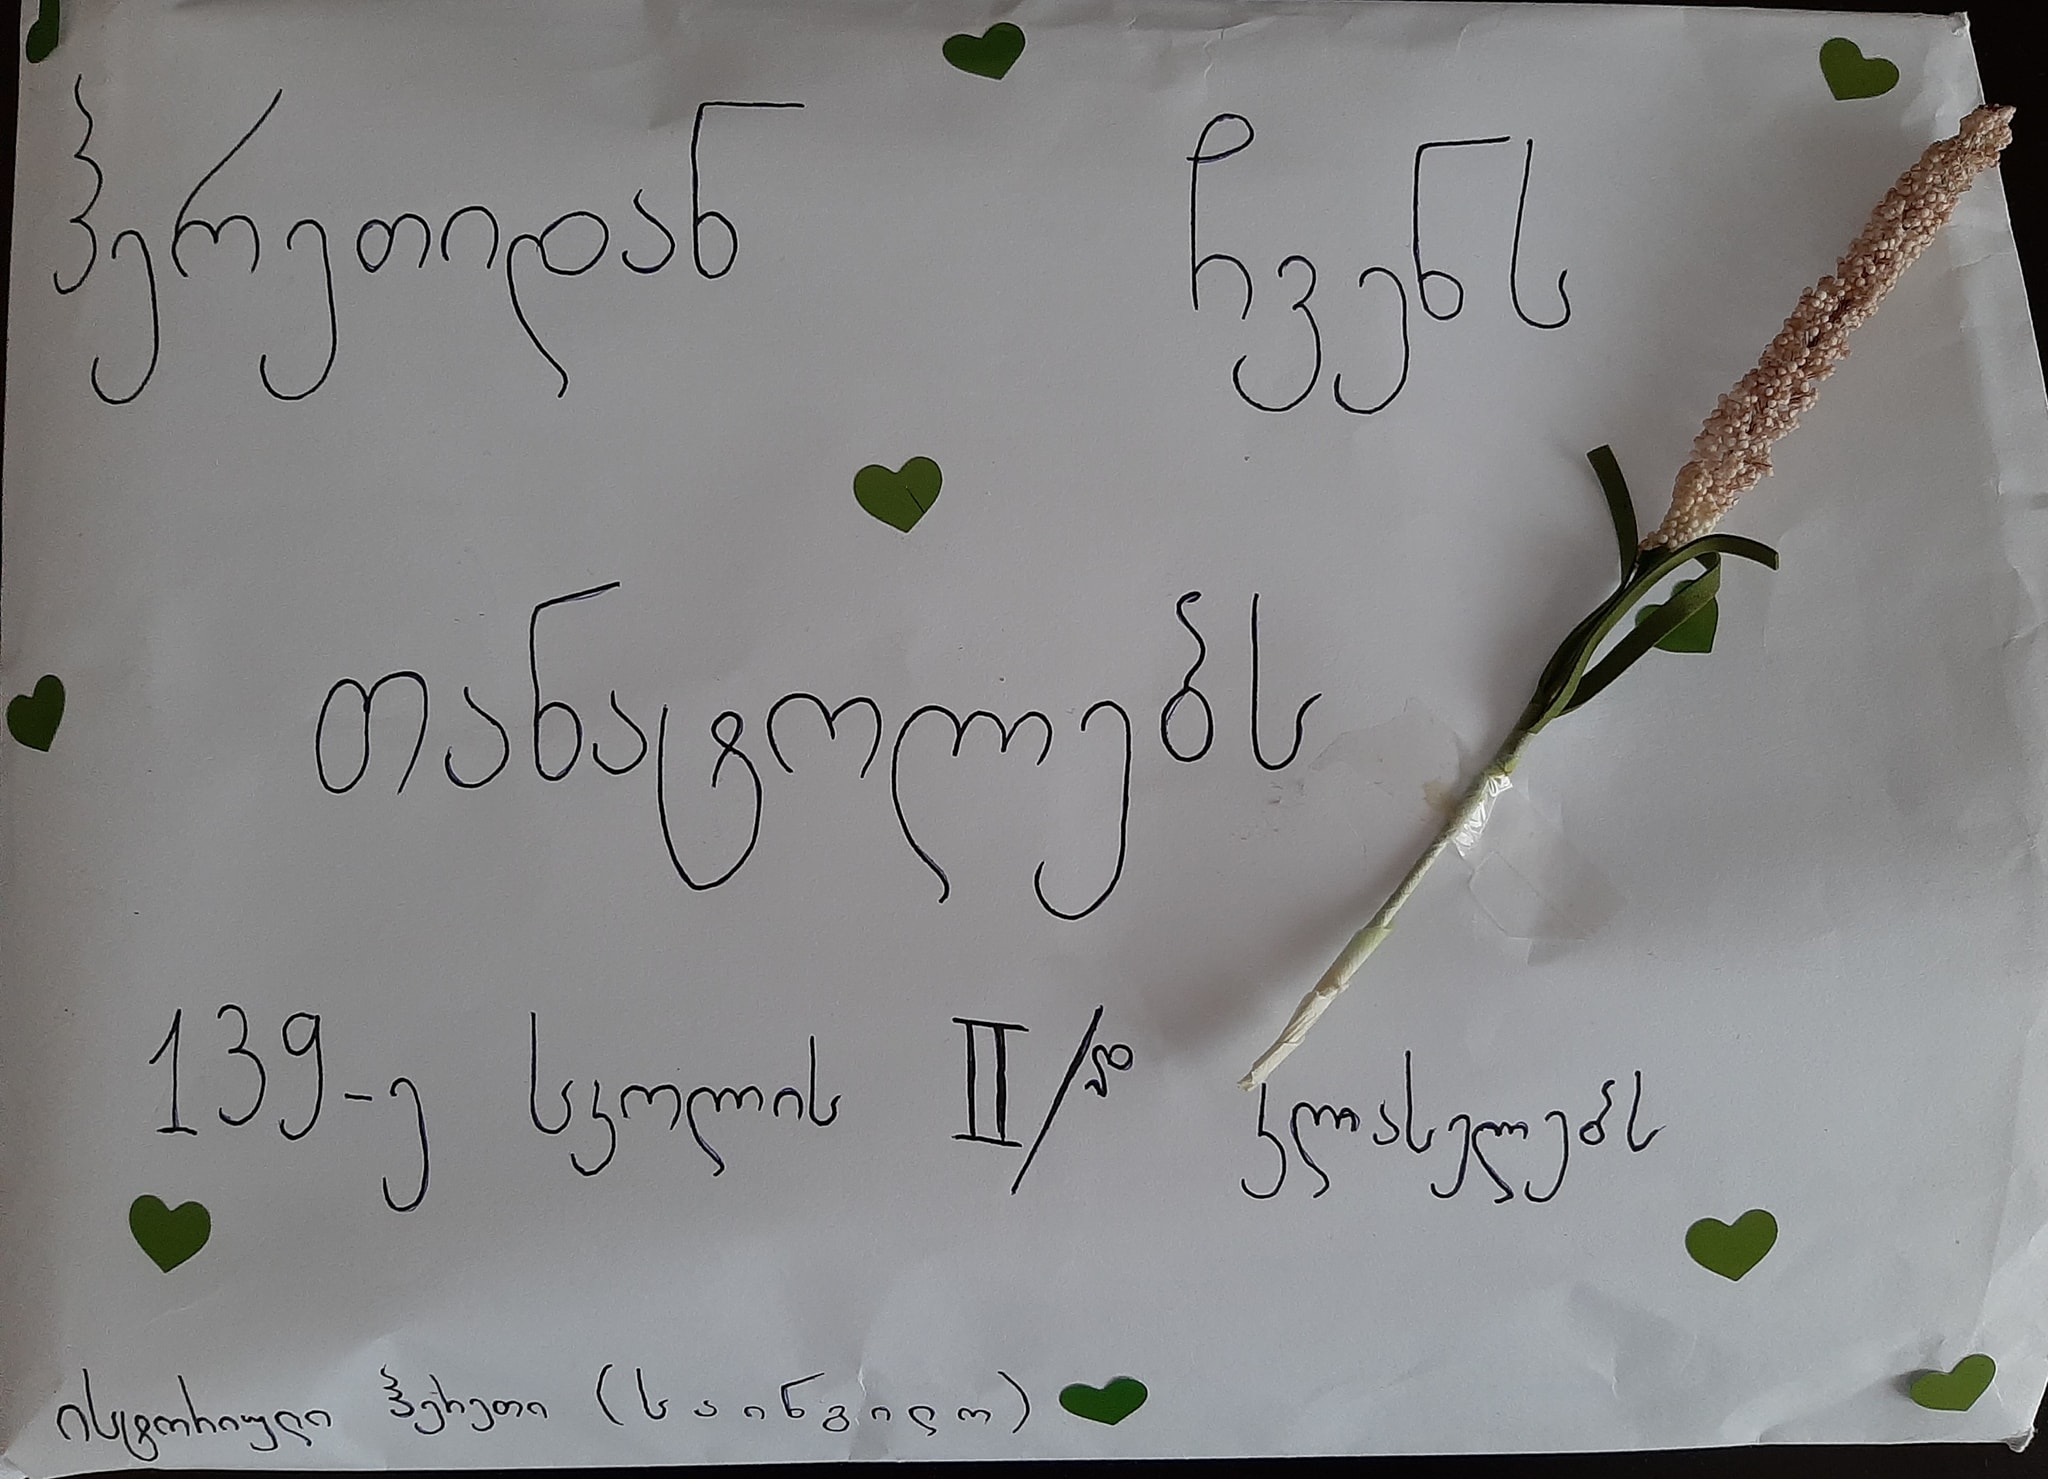 ჰერეთიდან ჩვენს
თანატოლებს
139-ე სკოლის II/დ კლასელებს
ისტორიული ჰერეთი (საინგილო)